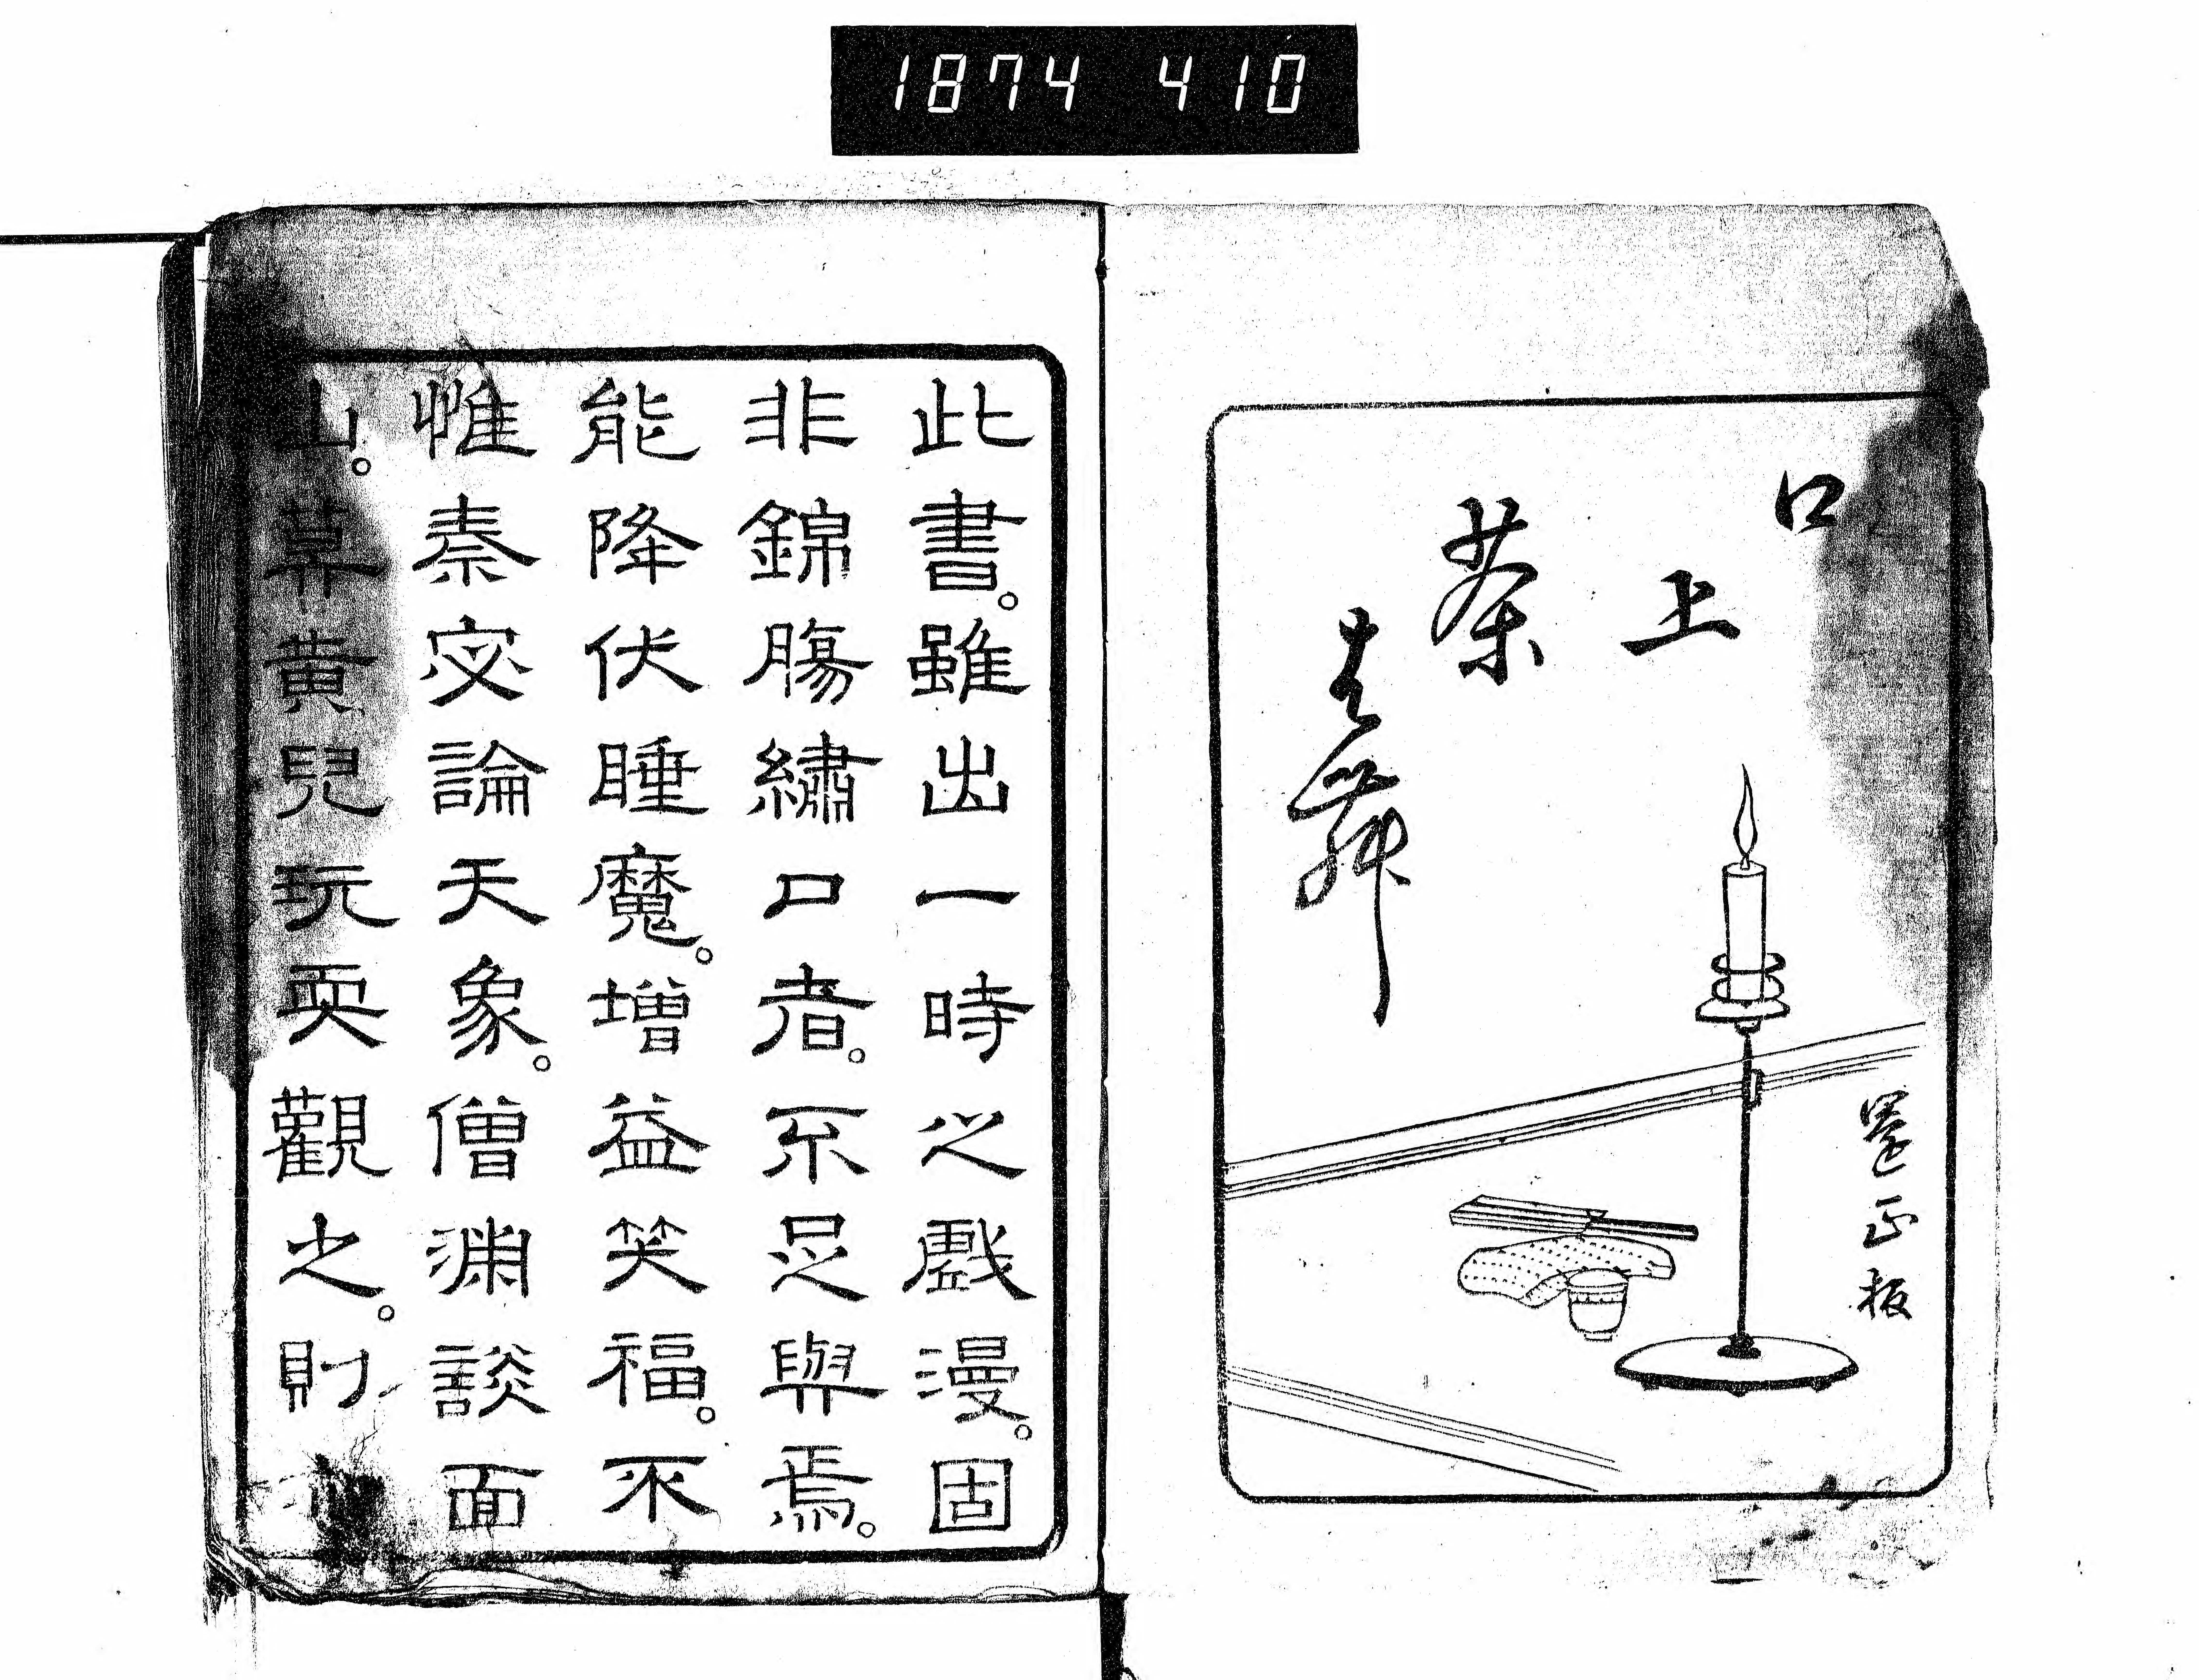 1874 410
口
上
茶
番
正板
此書。雖出一時之戲漫。固
非錦腸繡口者。不足與焉。
能降伏睡魔。增益笑福。不
惟秦宓論天象。僧淵談面
山。草黄兒玩耍觀之。財